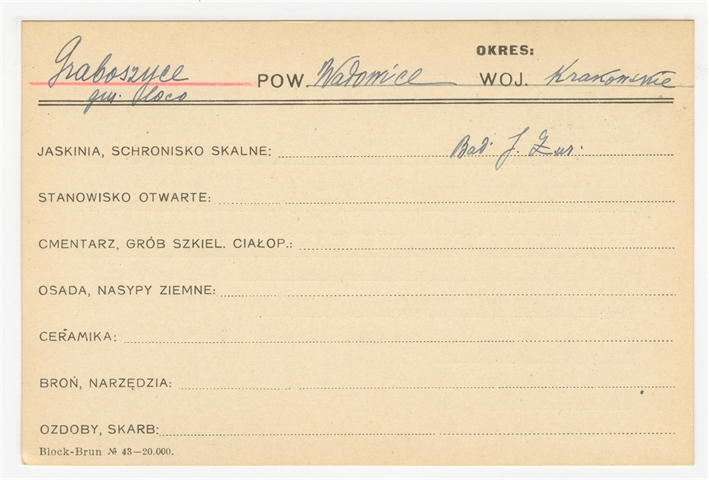 OKRES:
Graboszyce POW. Wadowice WOJ. Krakowskie
gm.
JASKINIA, SCHRONISKO SKALNE: Bad. J. Żur.
STANOWISKO OTWARTE:
CMENTARZ, GRÓB SZKIEL. CIAŁOP.:
OSADA, NASYPY ZIEMNE:
CERAMIKA:
BROŃ, NARZĘDZIA:
OZDOBY, SKARB:
Block-Brun № 43—20.000.